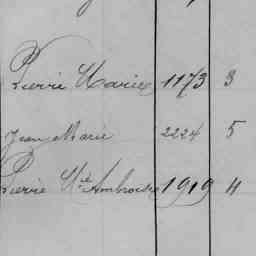 Pierre Marie 1173 3
Jean Marie 2224 5
Pierre Mie Ambroise 1919 4